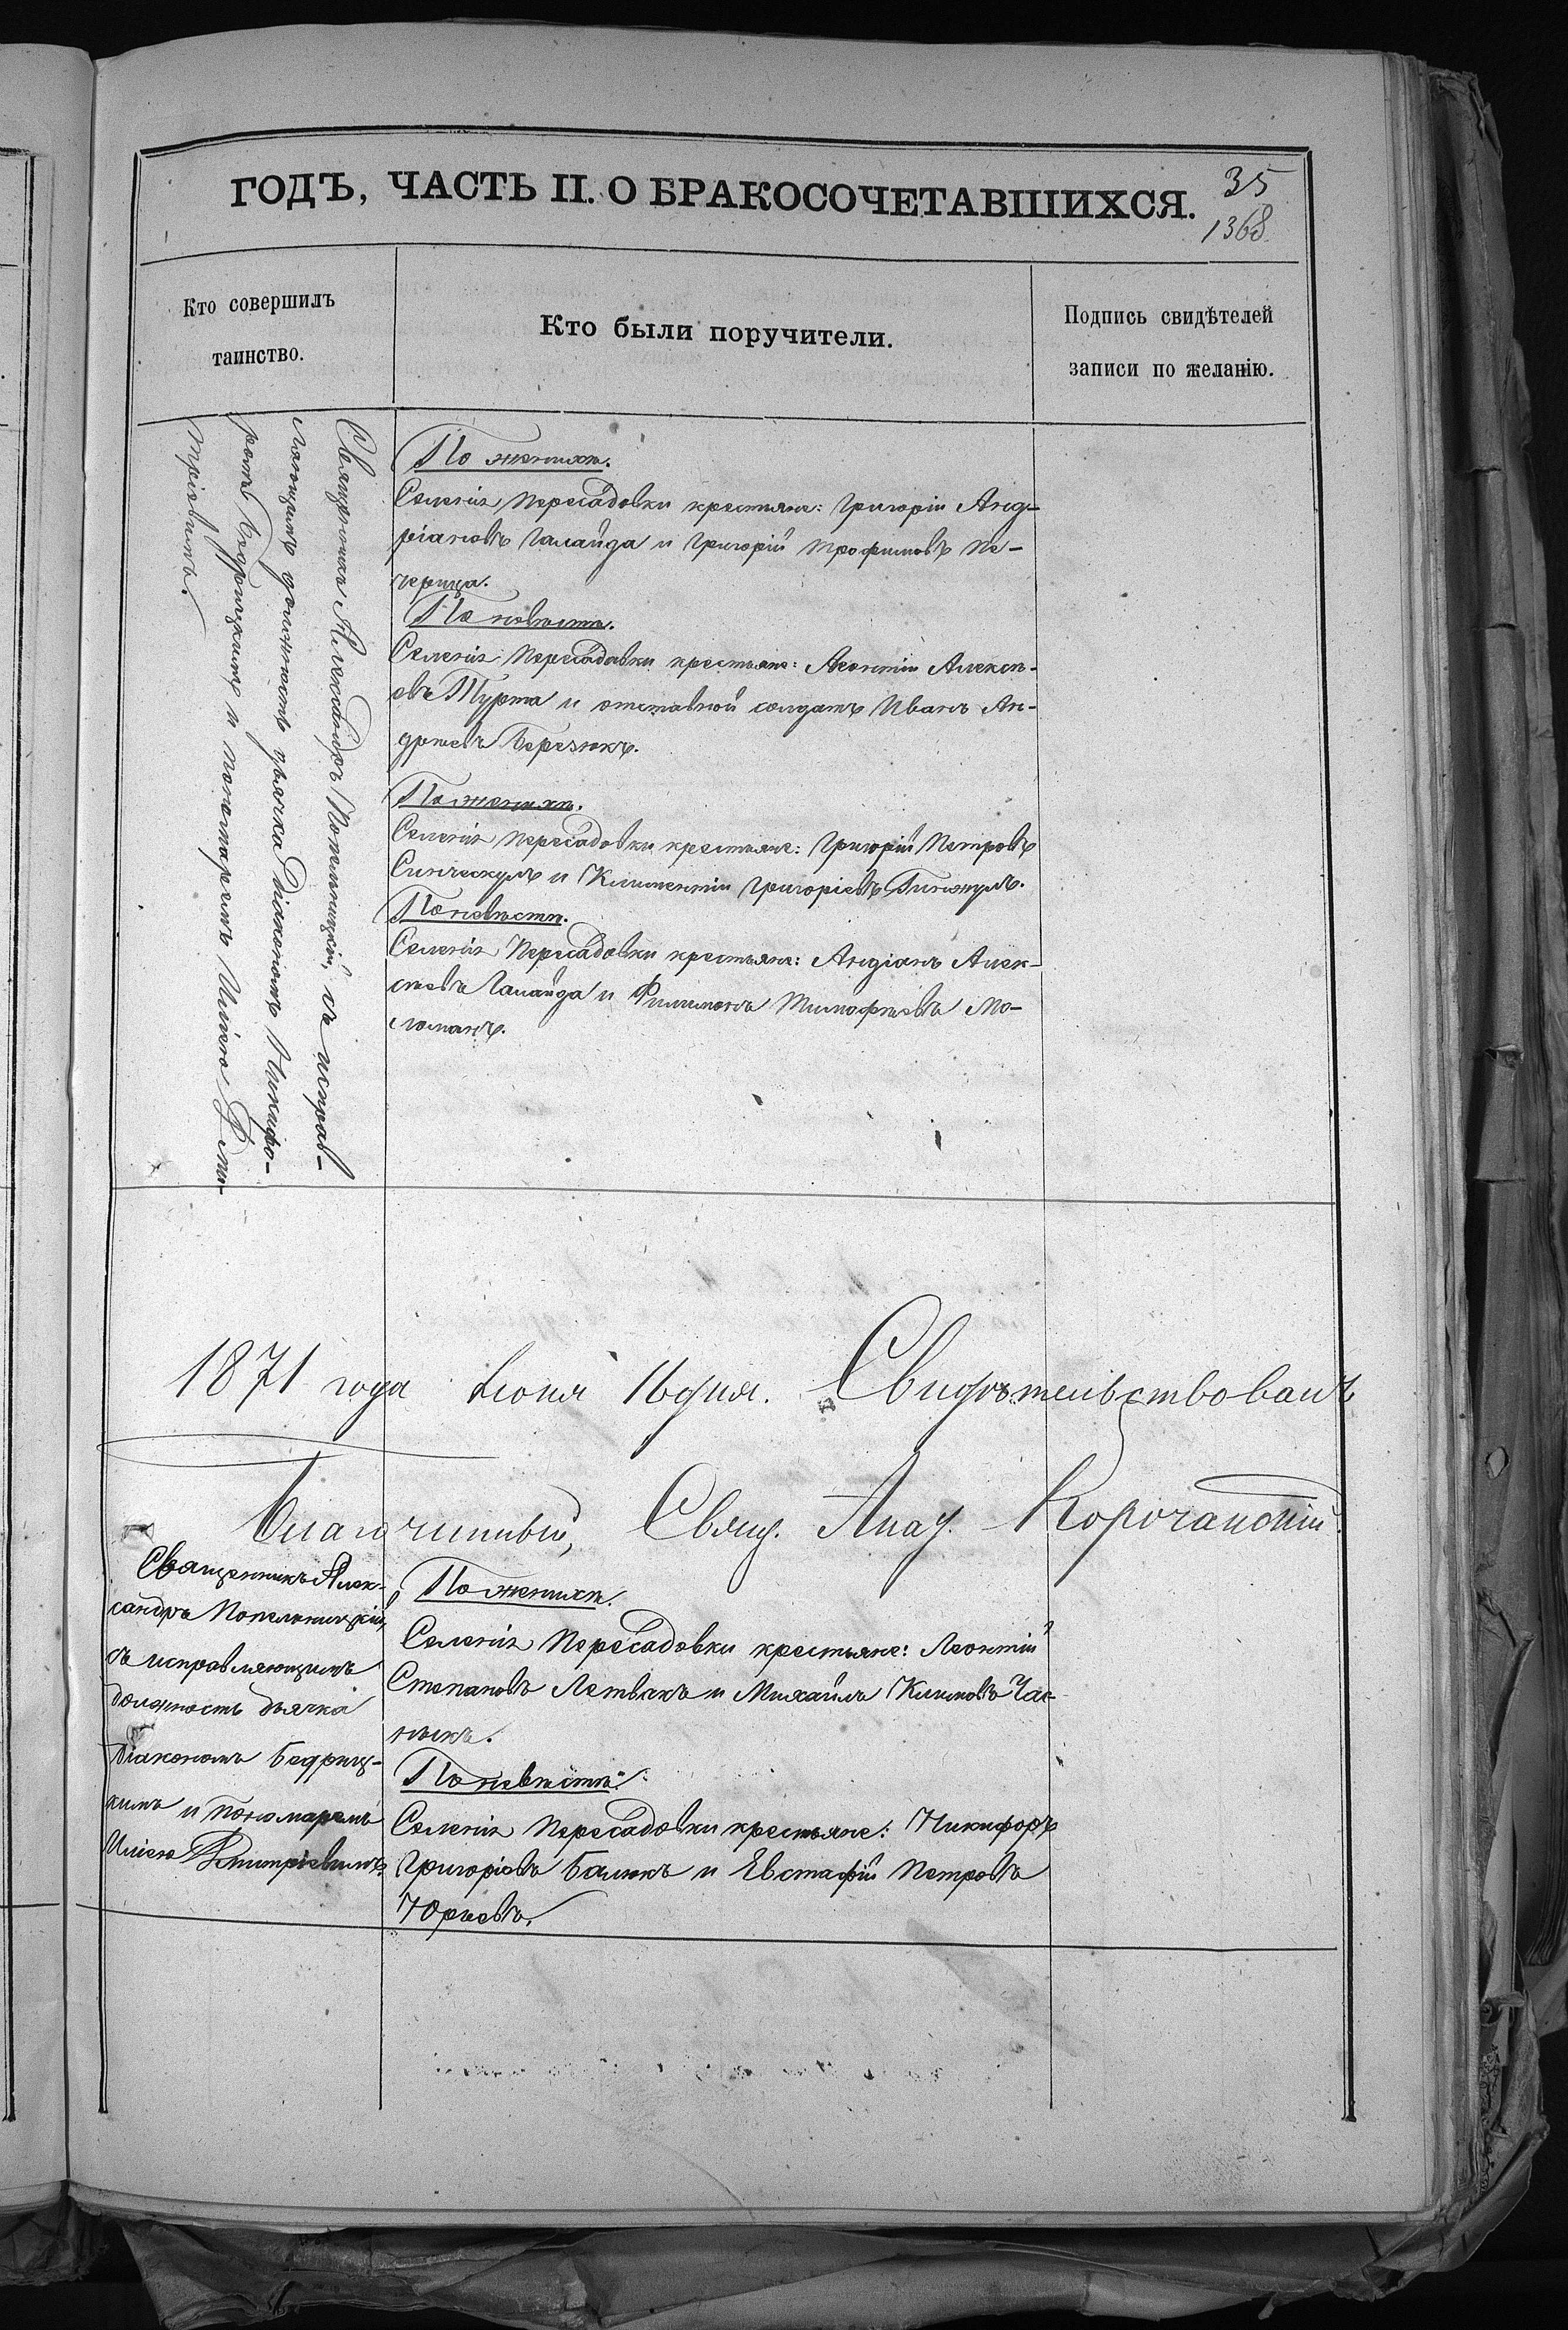 ГОДЪ, ЧАСТЬ II. О БРАКОСОЧЕТАВШИХСЯ.
35
1368
Кто совершилъ
таинство.
Кто были поручители.
Подпись свидѣтелей
записи по желанію.
Священникъ Александръ Попельницкій, съ исправ-
ляющимъ должность дьячка Діакономъ Никифо-
ромъ Бедрицкимъ и пономаремъ Иліею Дми-
тріевымъ.
По женихѣ.
Селенія Пересадовки крестьяне: Григорій Анд-
ріановъ Галайда и Григорій Трофимовъ Пе-
черица.
По невѣстѣ.
Селенія Пересадовки крестьяне: Леонтій Алексѣ-
евъ Турта и отставной солдатъ Иванъ Ан-
дреевъ Березюкъ.
По женихѣ.
Селенія Пересадовки крестьяне: Григорій Петровъ
и Климентій Григоріевъ
По невѣстѣ.
Селенія Пересадовки крестьяне: Андріанъ Алек-
сѣевъ Галайда и Филимонъ Тимофѣевъ Мо-
1871 года Іюня 16 дня. Свидѣтельствовалъ
Благочинный, Свящ. Корочанскій.
Священникъ Алек-
сандръ Попельницкій,
съ исправляющимъ
должность дьячка
Діакономъ Бедриц-
кимъ и пономаремъ
Иліею Дмитріевымъ.
По женихѣ.
Селенія Пересадовки крестьяне: Леонтій
Степановъ Летвякъ и Михаилъ Климовъ Час-
ныкъ.
По невѣстѣ.
Селенія Пересадовки крестьяне: Никифоръ
Григоріевъ Балюкъ и Евстафій Петровъ
Юрьевъ.